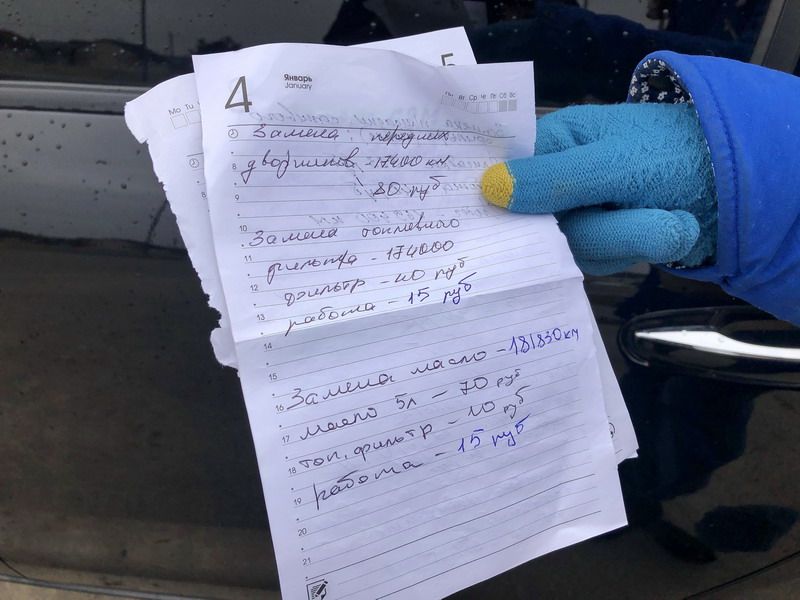 4
Январь
January
5
Мо Tu
Пн Вт Ср Че Пт Сб Вс
Замена передних
8
дворников - 17400 км
9
80 руб
10
Замена топливного
11
фильтра - 174000
12
фильтр - 40 руб
13
работа - 15 руб
14
15
Замена масло - 181830 км
16
17
масло 5л - 70 руб
18
топ. фильтр - 10 руб
19
работа - 15 руб
20
21